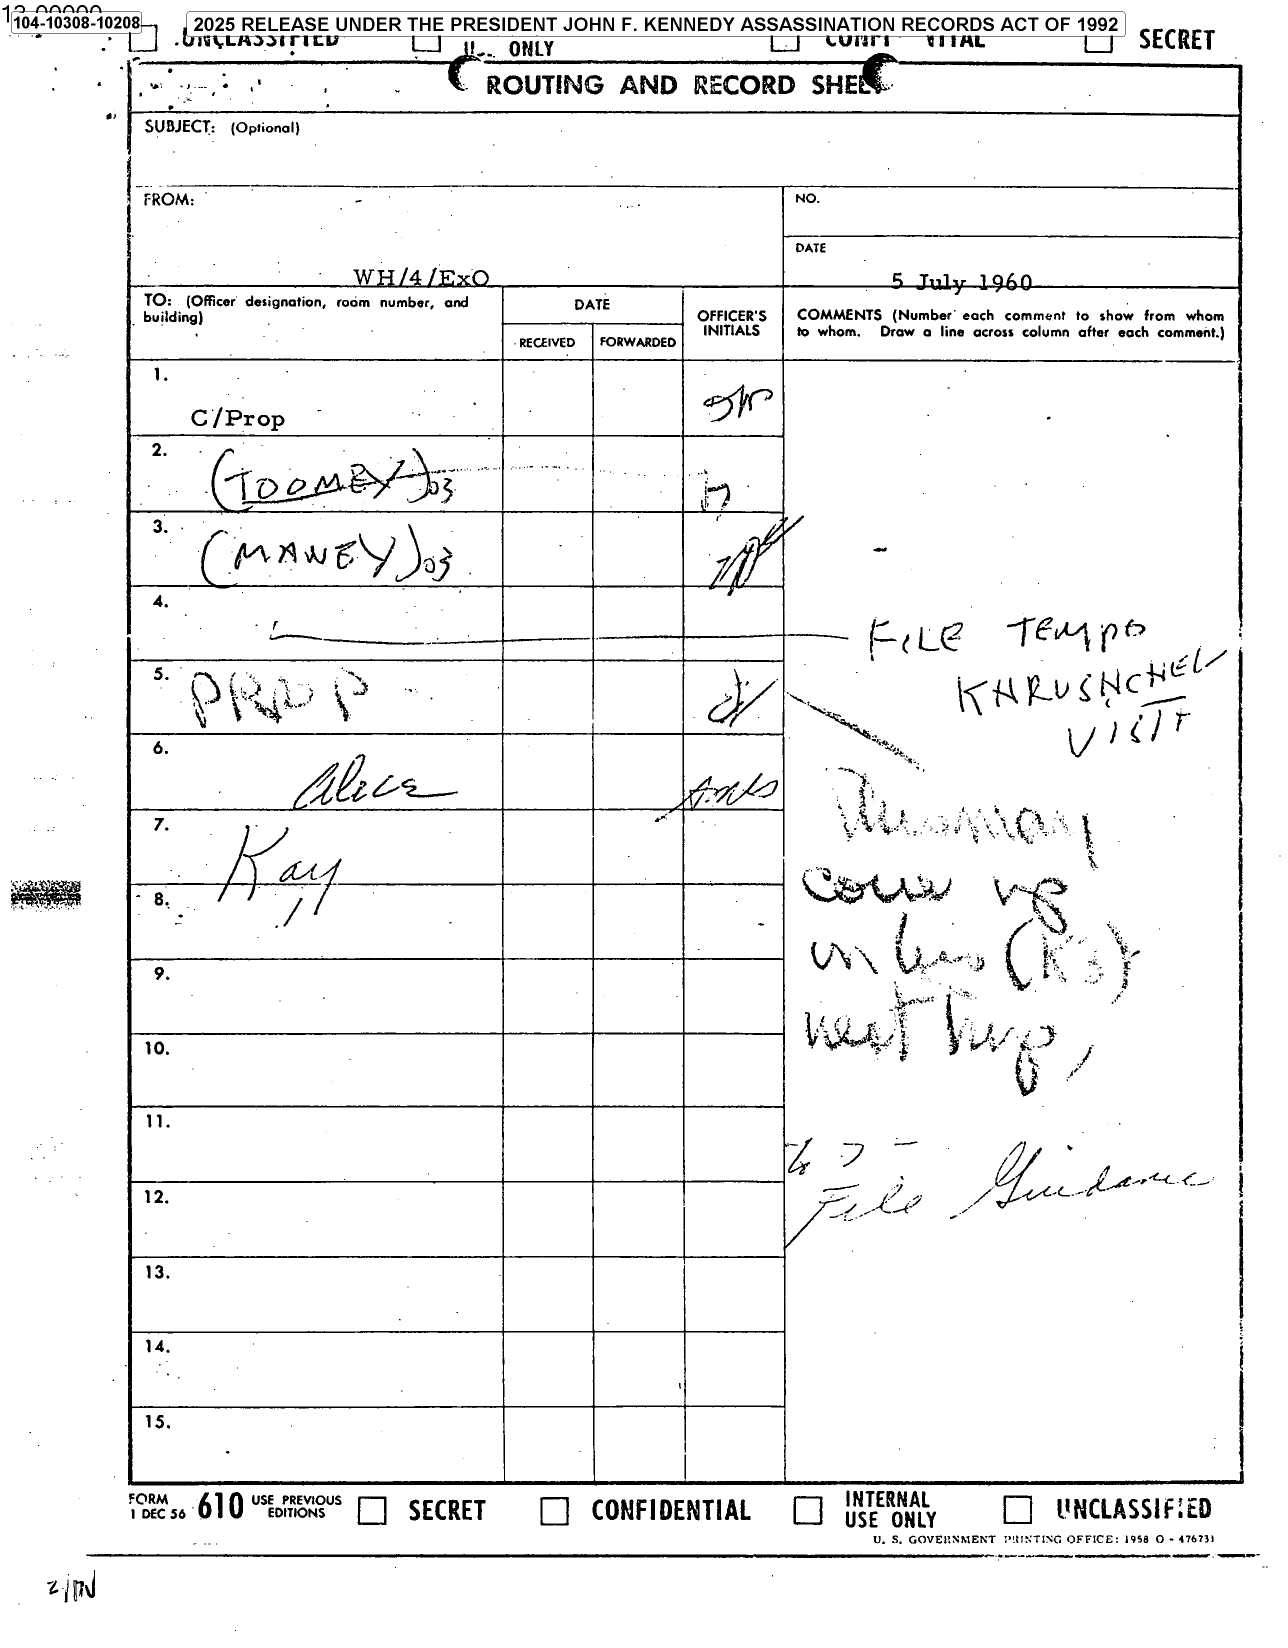 104-10308-10208
2025 RELEASE UNDER THE PRESIDENT JOHN F. KENNEDY ASSASSINATION RECORDS ACT OF 1992
UNCLASSIFIED ONLY SECRET
ROUTING AND RECORD SHEET
SUBJECT: (Optional)
FROM:
NO.
DATE
WH/4/ExO
5 July 1960
TO: (Officer designation, room number, and
building)
DATE
RECEIVED
FORWARDED
OFFICER'S
INITIALS
COMMENTS (Number each comment to show from whom
to whom. Draw a line across column after each comment.)
1.
C/Prop
2.
(TOOMEY)03
3.
(MANEY)03
4.
FILE TEMPO
KHRUSHCHEV
VISIT
5.
PROP
6.
Alice
7.
Kay
This may
come up
in his (K's)
next trip,
8.
9.
10.
11.
12.
File Guidance
13.
14.
15.
FORM
1 DEC 56 610 USE PREVIOUS
EDITIONS
SECRET
CONFIDENTIAL
INTERNAL
USE ONLY
UNCLASSIFIED
U. S. GOVERNMENT PRINTING OFFICE: 1958 O - 476731